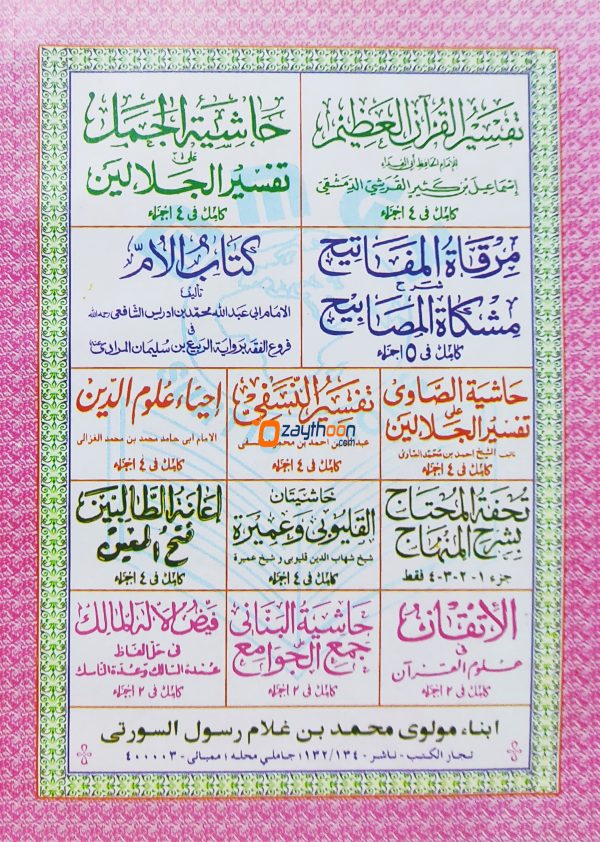 تفسير القرآن العظيم
للإمام الحافظ أبو الفداء
إسماعيل بن كثير القرشي الدمشقي
كامل في ٤ اجزاء
حاشية الجمل
على
تفسير الجلالين
كامل في ٤ اجزاء
مرقاة المفاتيح
شرح
مشكاة المصابيح
كامل في ٥ اجزاء
كتاب الأم
تأليف
الامام ابى عبد الله محمد بن ادريس الشافعى رحمه الله
فى
فروع الفقه برواية الربيع بن سليمان المرادى
حاشية الصاوى
على
تفسير الجلالين
الشيخ احمد بن محمد الصاوى
كامل في ٤ اجزاء
تفسير النسفى
بن احمد بن محمود
كامل في ٤ اجزاء
zaythoon
.com
إحياء علوم الدين
الامام ابى حامد محمد بن محمد الغزالى
كامل في ٤ اجزاء
تحفة المحتاج
بشرح المنهاج
جزء ١-٢-٣-٤ فقط
حاشيتان
القليوبى وعميرة
شيخ شهاب الدين قليوبى و شيخ عميرة
كامل في ٤ اجزاء
إعانة الطالبين
فتح المعين
كامل في ٤ اجزاء
الإتقان
فى
علوم القرآن
كامل في ٢ اجزاء
حاشية البنانى
جمع الجوامع
كامل في ٢ اجزاء
فيض الإله المالك
فى حل الفاظ
عمدة السالك وعدة الناسك
كامل في ٢ اجزاء
ابناء مولوى محمد بن غلام رسول السورتى
تجار الكتب - ناشر - ١٣٢/١٣٤؛ جاملي محله؛ ممبائى - ٤٠٠٠٠٣